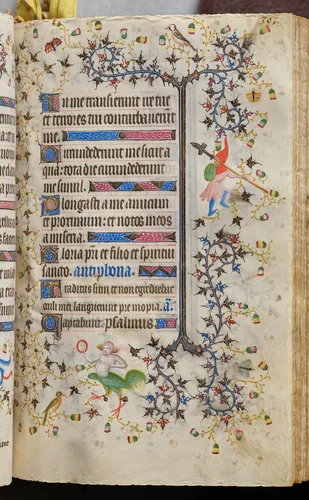 In me transierunt ire tue
et terrores tui conturbaverunt
me.
Circundederunt me sicut
aqua: tota die circundederunt
me simul.
Elongasti a me amicum
et proximum: et notos meos
a miseria.
Gloria pri et filio et spiritui
sancto. antiphona.
Traditus sum et non egrediebar
oculi mei languerunt pre inopia. a.
Captabunt. psalmus